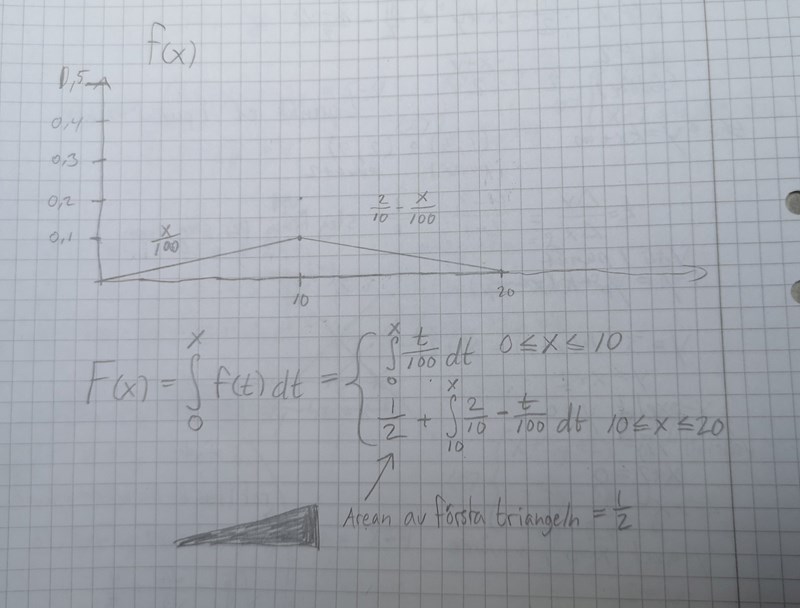 f(x)
0,5
0,4
0,3
0,2
0,1
x/100
2/10 - x/100
10
20
F(x) = ∫₀ˣ f(t) dt = { ∫₀ˣ t/100 dt 0 ≤ x ≤ 10
1/2 + ∫₁₀ˣ 2/10 - t/100 dt 10 ≤ x ≤ 20
Arean av första triangeln = 1/2